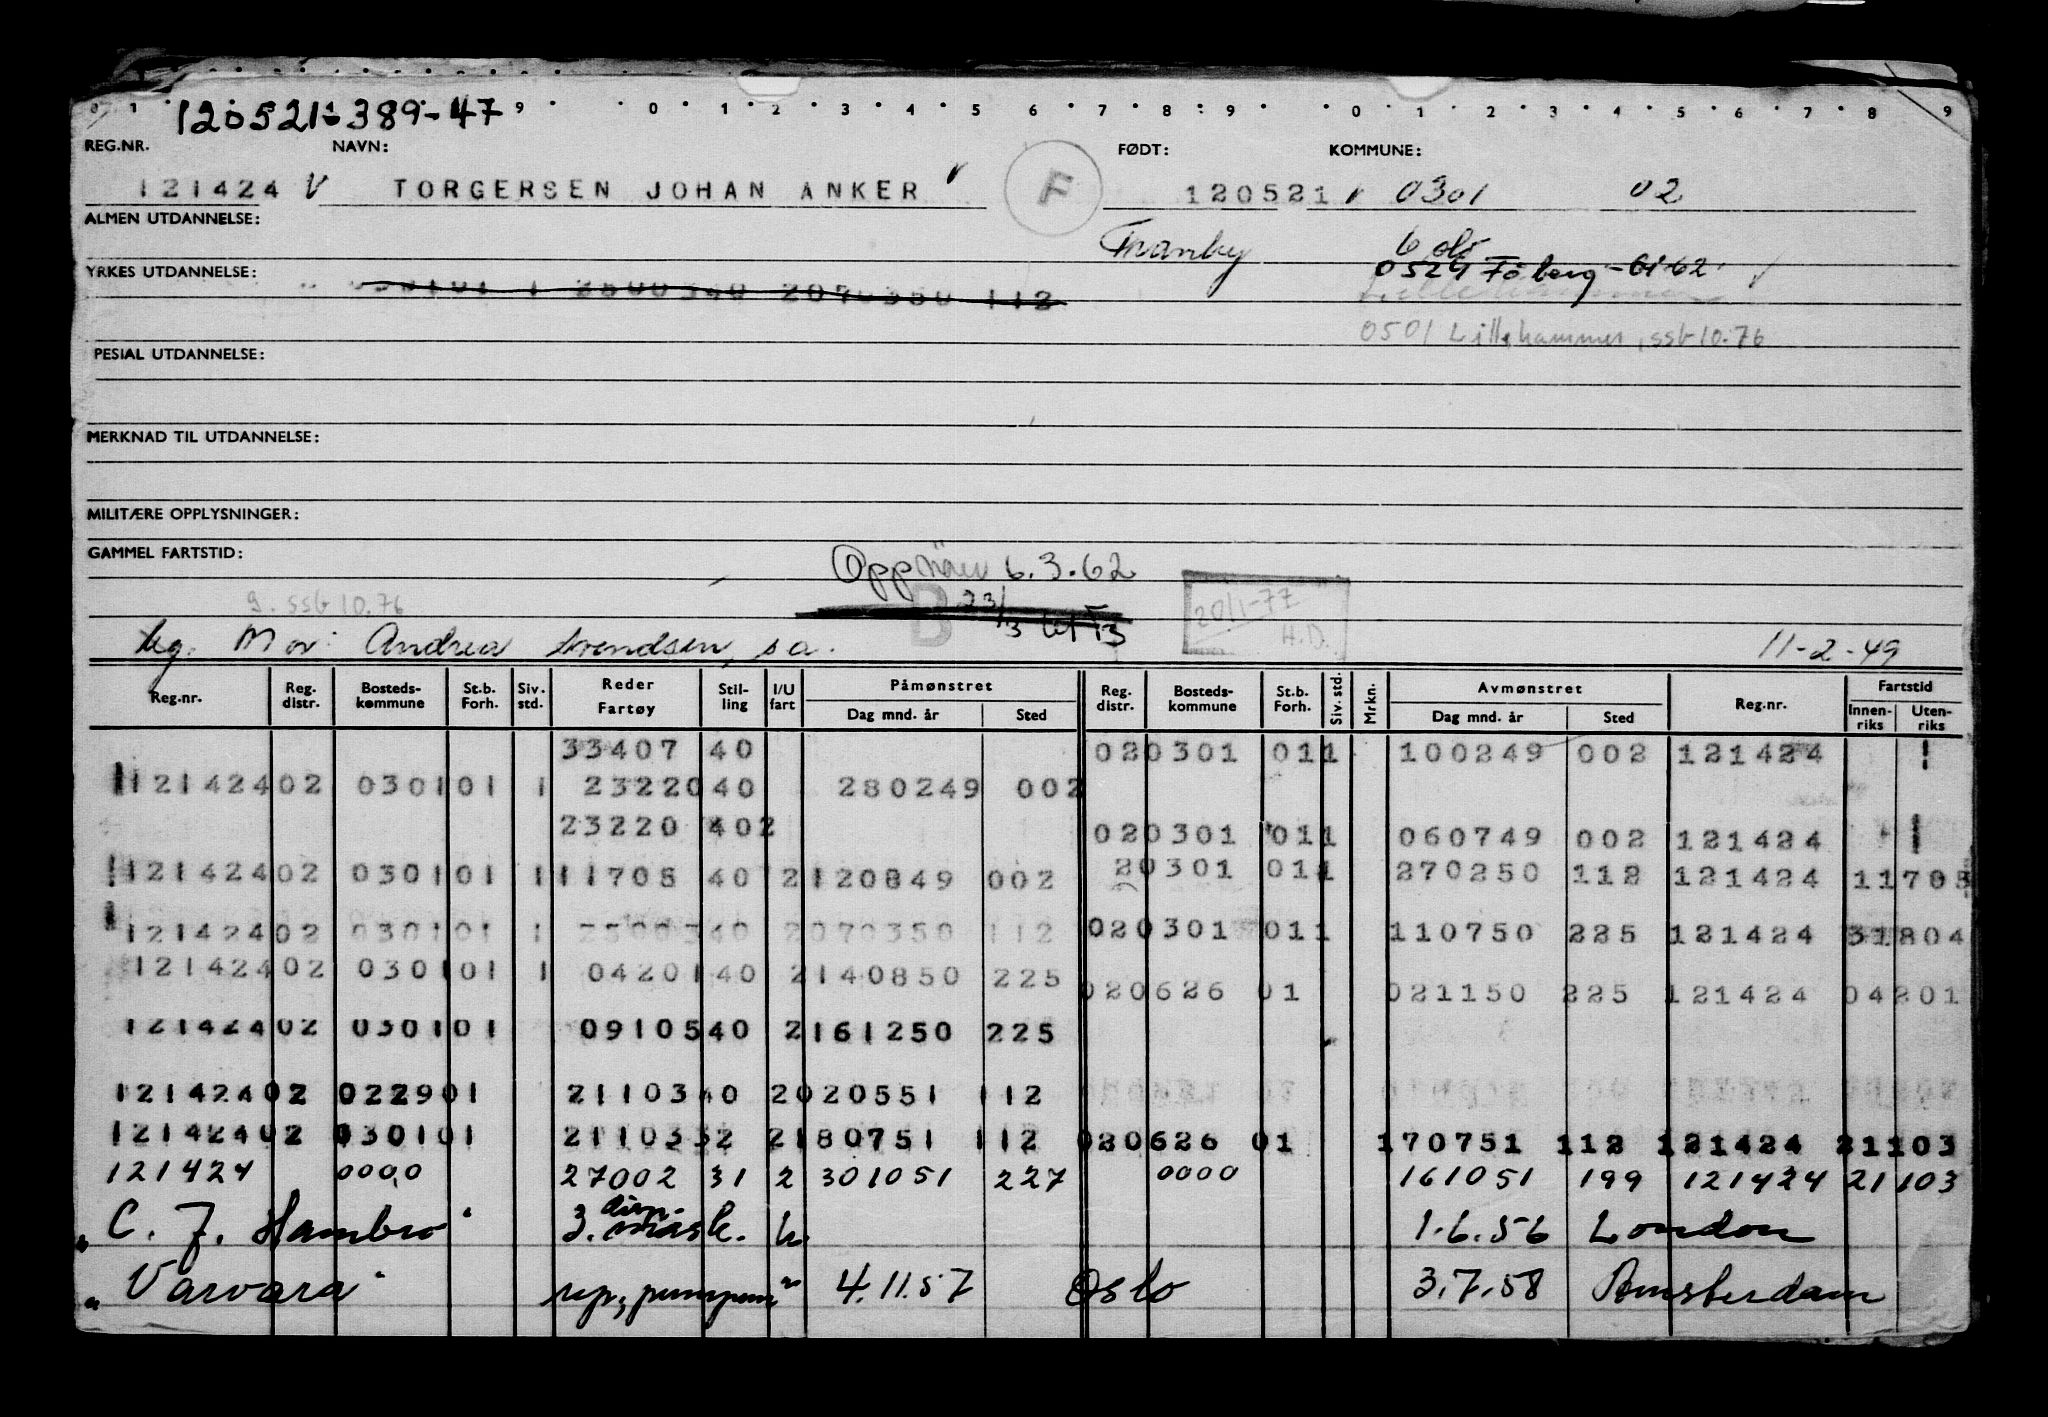 0 1 9 · 0 · 1 · 2 · 3 · 4 · 5 · 6 · 7 · 8 : 9 · 0 · 1 · 2 · 3 · 4 · 5 · 6 · 7 · 8 9
120521 389-47
REG.NR. NAVN: FØDT: KOMMUNE:
121424 V TORGERSEN JOHAN ANKER V F 120521 V 0301 02
ALMEN UTDANNELSE:
Tranby
0524 Fåberg - GI 62
YRKES UTDANNELSE: 1 2500340 2070350 112
0501 Lillehammer, ssb 10.76
PESIAL UTDANNELSE:
MERKNAD TIL UTDANNELSE:
MILITÆRE OPPLYSNINGER:
GAMMEL FARTSTID:
6.3.62
9. ssb 10.76 B 23/3 20/1-77 H.D.
Mor: Andrea Svendsen, s.a. 11-2-49
Reg.nr. Reg. distr. Bosteds- kommune St.b. Forh. Siv. std. Reder Fartøy Stil- ling I/U fart Påmønstret Dag mnd. år Sted Reg. distr. Bosteds- kommune St.b. Forh. Siv. std. Mrkn. Avmønstret Dag mnd. år Sted Reg.nr. Fartstid Innen- riks Uten- riks
33407 40 020301 011 100249 002 121424 1
12142402 030101 1 2322040 280249 002
23220 402 020301 011 060749 002 121424 1
12142402 030101 1 11705 40 2120849 002 20301 011 270250 112 121424 11705
12142402 030101 1 2500340 2070350 112 020301 011 110750 225 121424 31804
12142402 030101 1 0420140 2140850 225 020626 01 021150 225 121424 04201
12142402 030101 0910540 2161250 225
12142402 022901 2110340 2020551 112
12142402 030101 2110332 2180751 112 020626 01 170751 112 121424 21103
121424 0000 27002 31 2 301051 227 0000 161051 199 121424 21103
" C. J. Hambro " 3. mask. u. 1.6.56 London
" Varvara " rep, pumpem" 4.11.57 Oslo 3.7.58 Amsterdam